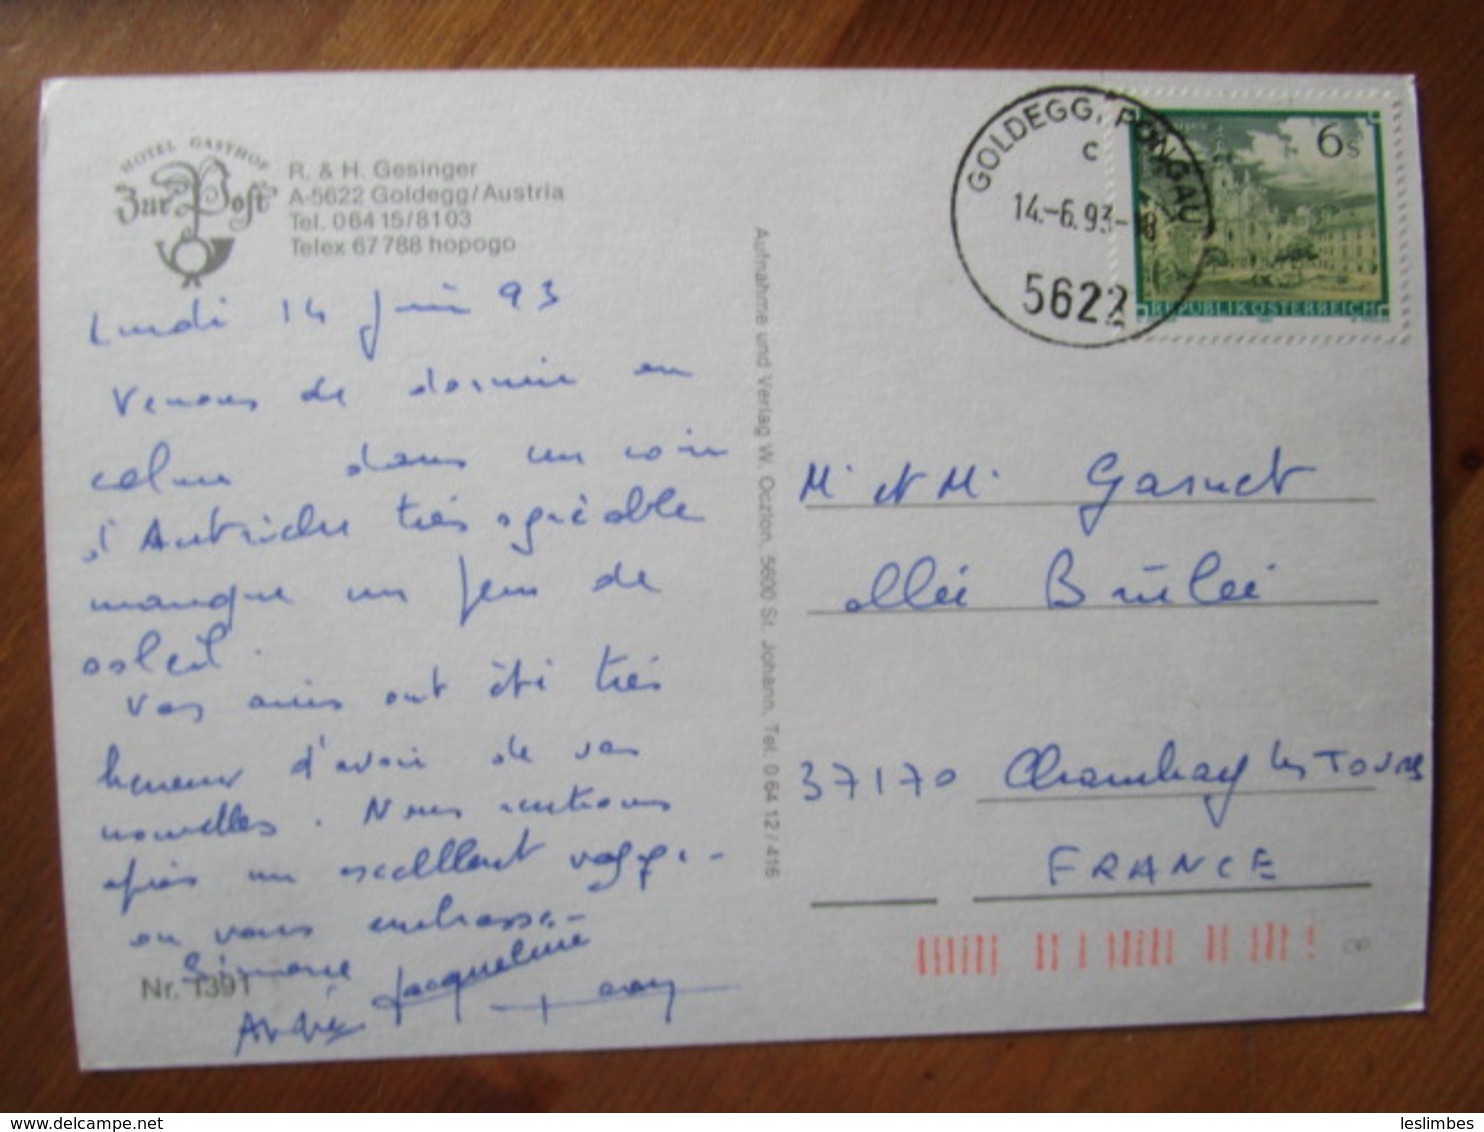 HOTEL GASTHOF
Zur Post
R. & H. Gesinger
A-5622 Goldegg/Austria
Tel. 06415/8103
Telex 67788 hopogo
Lundi 14 Juin 93
Venons de dormir au
calme dans un coin
d'Autriche très agréable
manque un peu de
soleil.
Vos amis ont été très
heureux d'avoir de vos
nouvelles. Nous rentrons
après un excellent voyage-
on vous embrasse-
Simone
Jacqueline
André
Nr. 1391
Aufnahme und Verlag W. Oczlon, 5600 St. Johann, Tel. 0 64 12 / 416
GOLDEGG, PONGAU
c
14.-6.93-18
5622
6s
REPUBLIK ÖSTERREICH
Mr et Me Gasnet
allée Brûlée
37170 Chambray les TOURS
FRANCE
delcampe.net
leslimbes